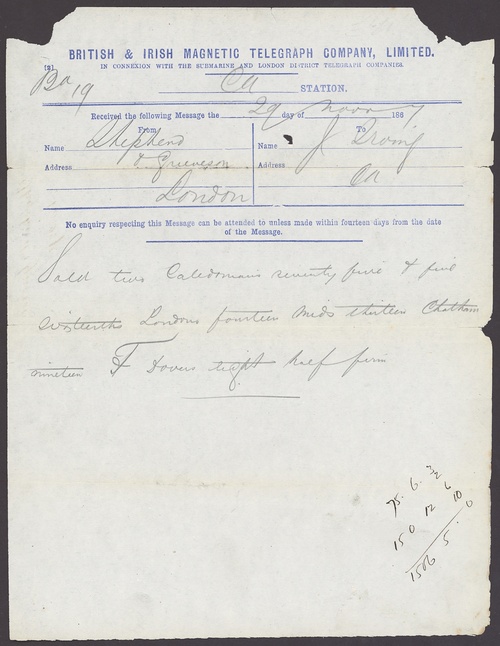 BRITISH & IRISH MAGNETIC TELEGRAPH COMPANY, LIMITED.
[2] IN CONNEXION WITH THE SUBMARINE AND LONDON DISTRICT TELEGRAPH COMPANIES.
19
Ca STATION.
Received the following Message the 29 day of Novr 1867
From To
Name Shepherd Name J Irving
Address & Grieveson Address Ca
London
No enquiry respecting this Message can be attended to unless made within fourteen days from the date
of the Message.
Sold two Caledonians seventy five & five
sixteenths Londons fourteen Mids thirteen Chatham
nineteen Dovers eight half firm
75. 6.
150 12 6
10
1506 5. 0